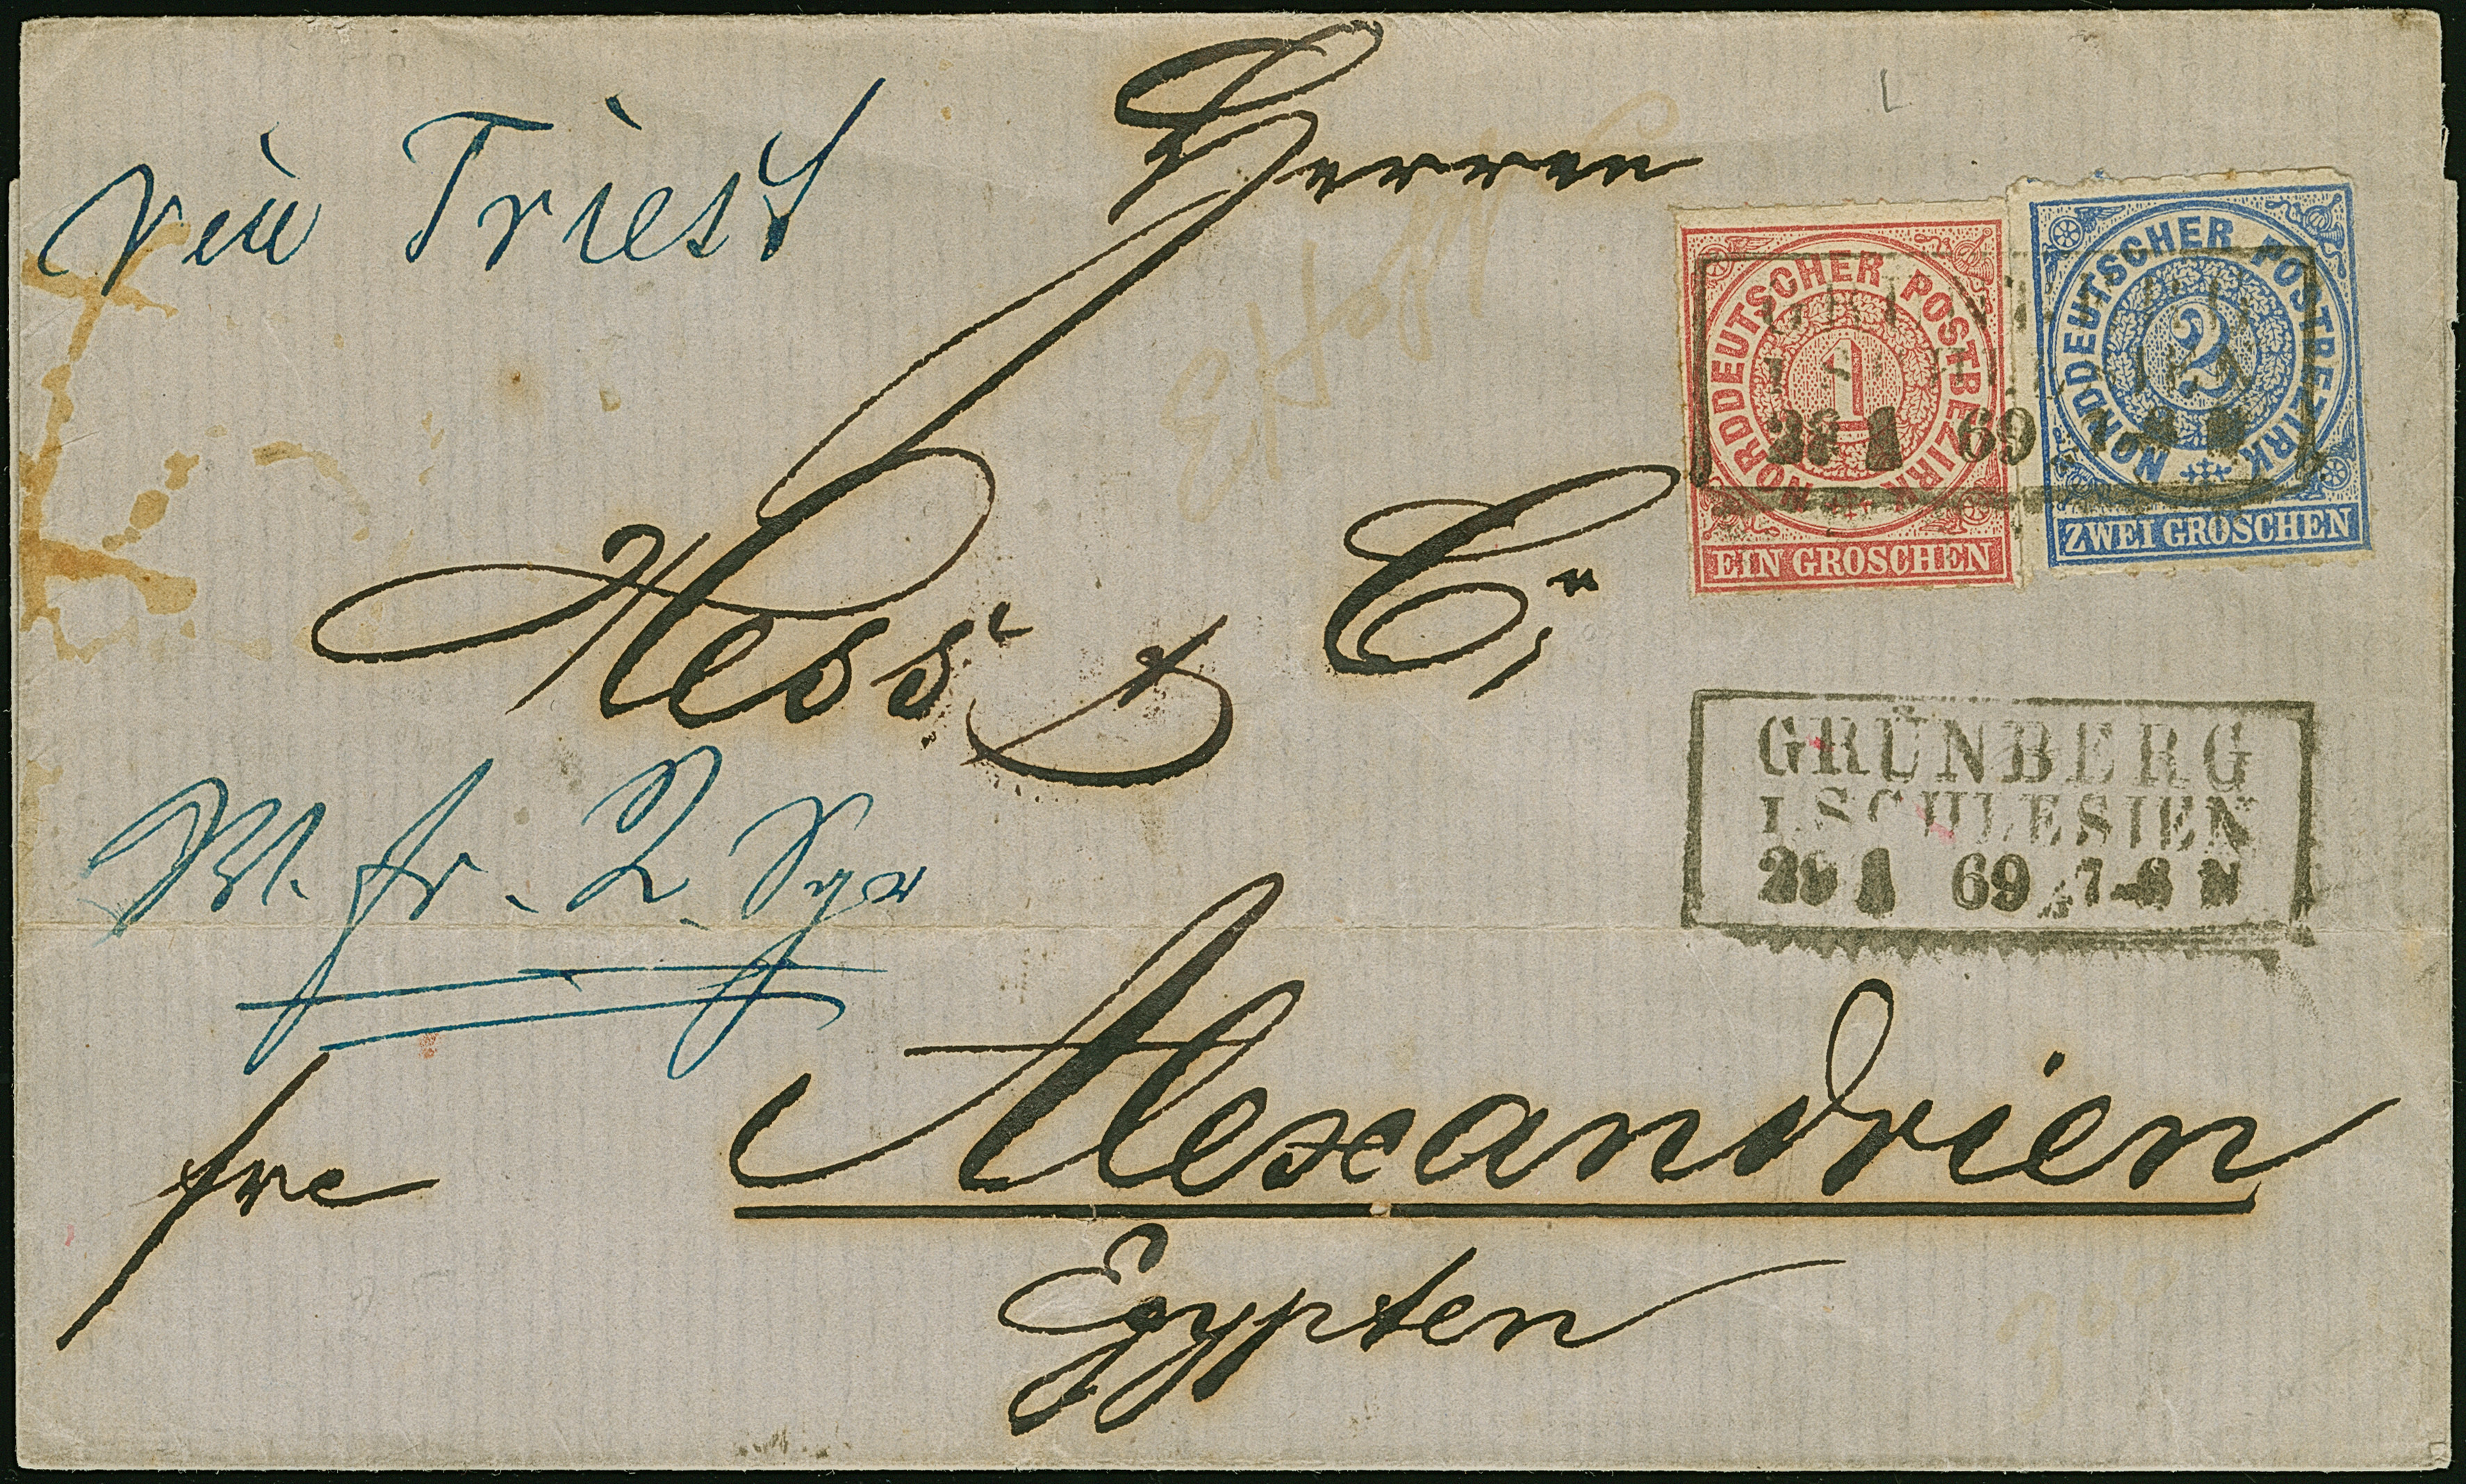 via Triest
Herren
Hess & Co,
W. fr. 2 Sgr
fre
Alexandrien
Egypten
NORDDEUTSCHER POSTBEZIRK
1
EIN GROSCHEN
NORDDEUTSCHER POSTBEZIRK
2
ZWEI GROSCHEN
GRÜNBERG
I. SCHLESIEN
29 1 69
GRÜNBERG
I. SCHLESIEN
29 1 69 7-8 N